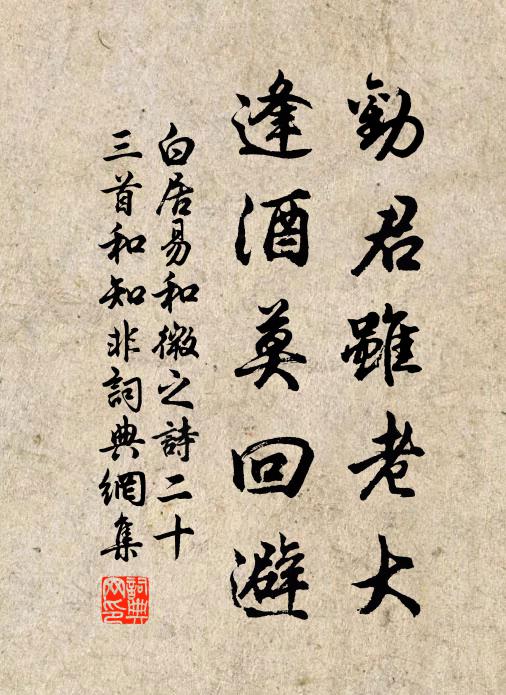 勸君雖老大
逢酒莫回避
白居易和微之詩二十
三首和知非詞典網集
詞典网印